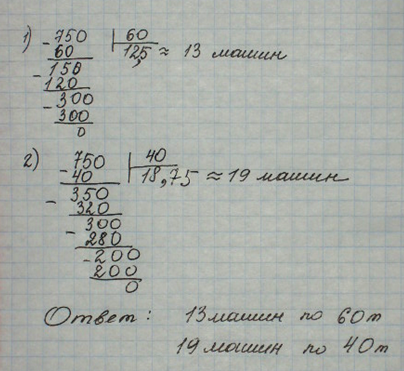 1) - 750 | 60
60 12,5 ≈ 13 машин
- 150
120
- 300
300
0
2) - 750 | 40
40 18,75 ≈ 19 машин
- 350
320
- 300
280
- 200
200
0
Ответ: 13 машин по 60т
19 машин по 40т